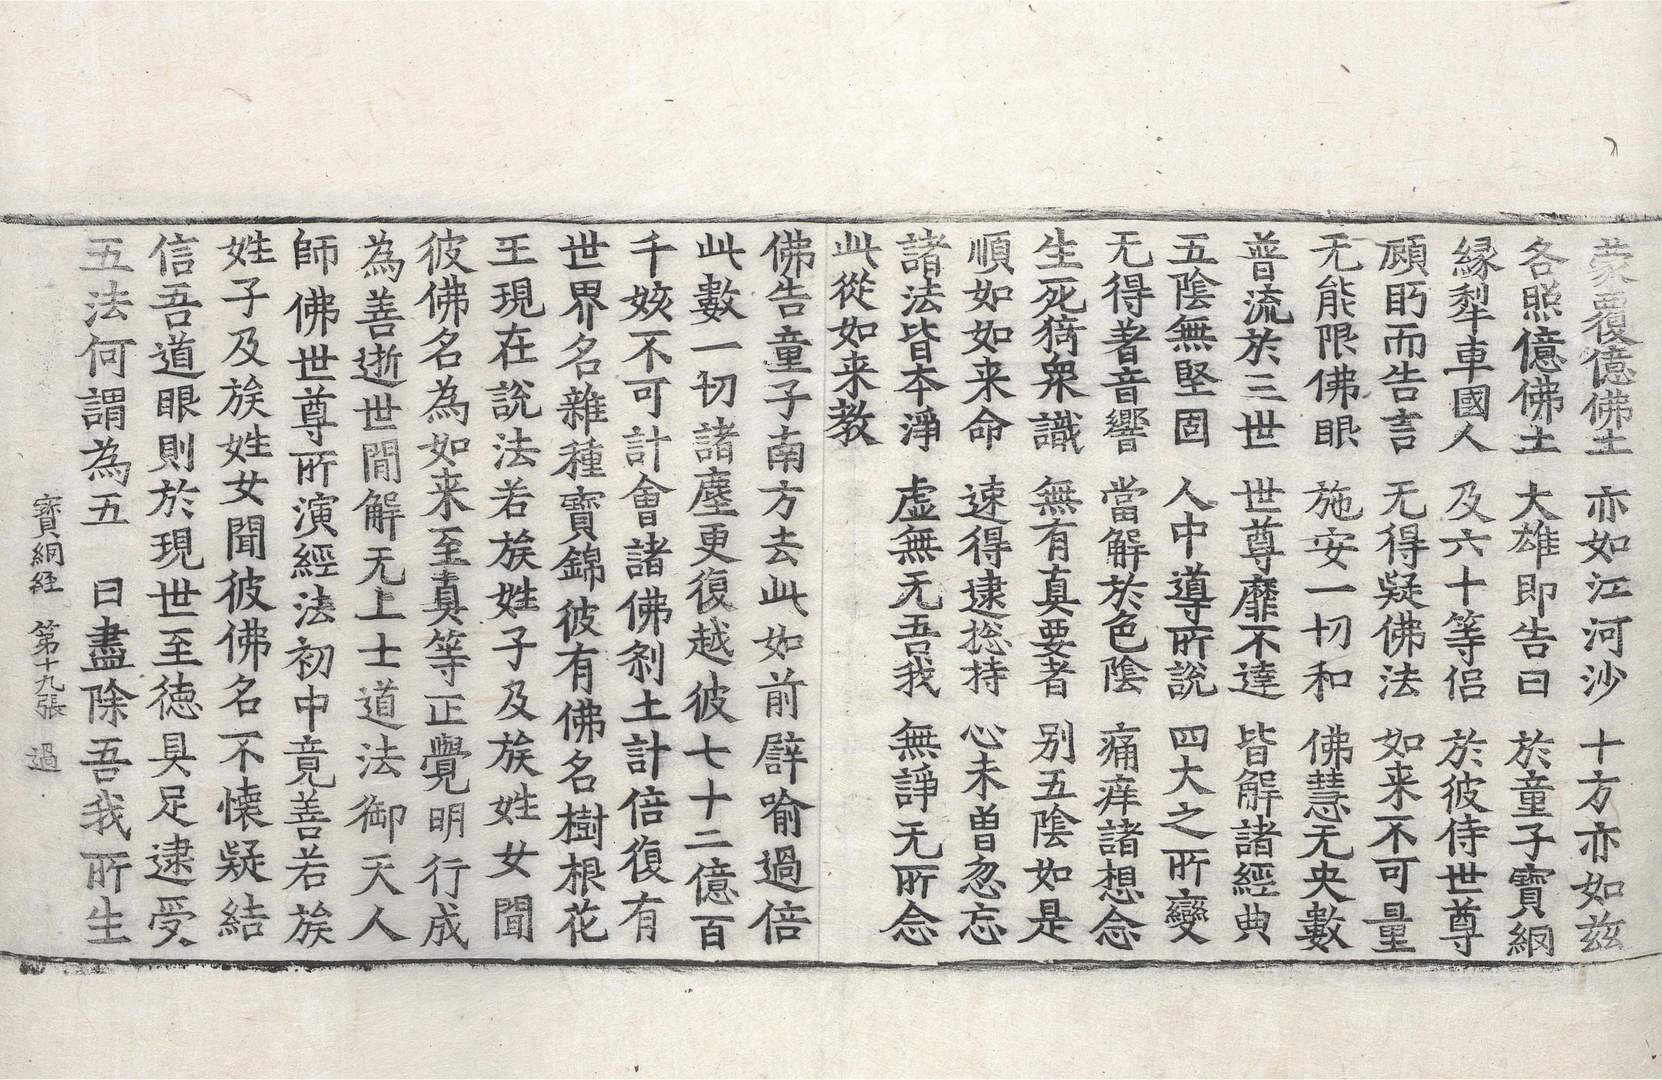 蒙覆億佛土 亦如江河沙 十方亦如茲
各照億佛土 大雄即告曰 於童子寶網
緣犁車國人 及六十等侶 於彼侍世尊
顧眄而告言 无得疑佛法 如来不可量
无能限佛眼 施安一切和 佛慧无央數
普流於三世 世尊靡不達 皆解諸經典
五陰無堅固 人中導所說 四大之所變
无得著音響 當解於色陰 痛痒諸想念
生死猗衆識 無有真要者 别五陰如是
順如如来命 速得逮捴持 心未曽忽忘
諸法皆本淨 虛無无吾我 無諍无所念
此從如来教
佛告童子南方去此如前譬喻過倍
此數一切諸塵更復越彼七十二億百
千姟不可計會諸佛剎土計倍復有
世界名雜種寶錦彼有佛名樹根花
王現在說法若族姓子及族姓女聞
彼佛名為如来至真等正覺明行成
為善逝世間解无上士道法御天人
師佛世尊所演經法初中竟善若族
姓子及族姓女聞彼佛名不懷疑結
信吾道眼則於現世至德具足逮受
五法何謂為五 曰盡除吾我所生
寶網経 第十九張 過